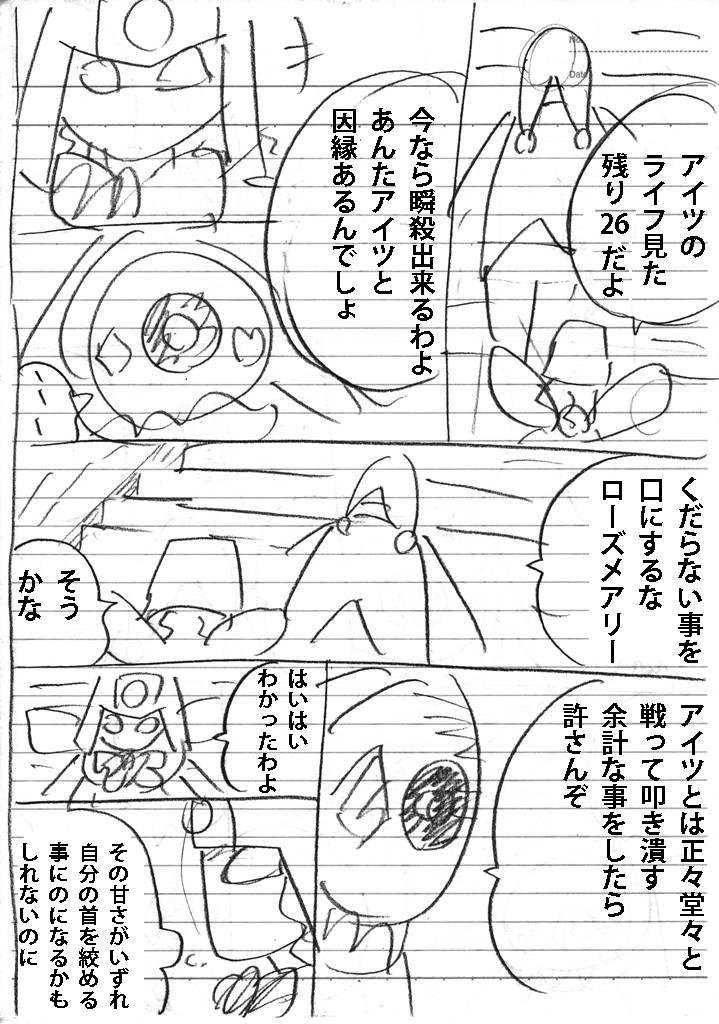 アイツの
ライフ見た
残り26だよ
今なら瞬殺出来るわよ
あんたアイツと
因縁あるんでしょ
くだらない事を
口にするな
ローズメアリー
そう
かな
アイツとは正々堂々と
戦って叩き潰す
余計な事をしたら
許さんぞ
はいはい
わかったわよ
その甘さがいずれ
自分の首を絞める
事にのになるかも
しれないのに
No.
Date